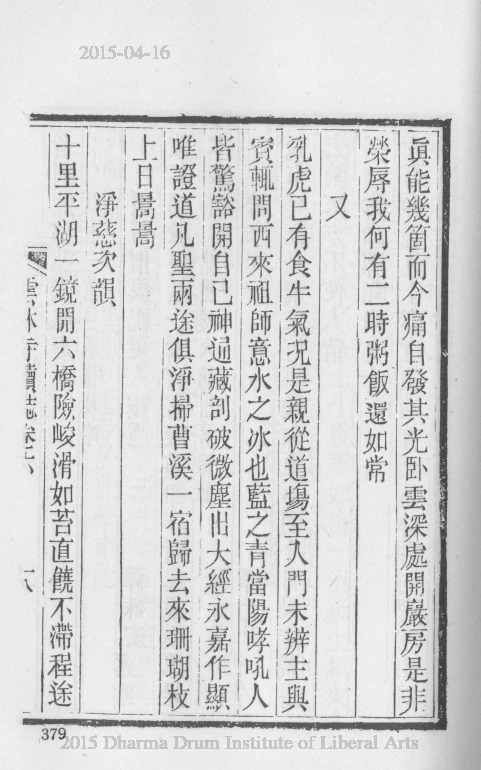 2015-04-16
眞能幾箇而今痛自發其光卧雲深處開巖房是非
榮辱我何有二時粥飯還如常
又
乳虎已有食牛氣况是親從道場至入門未辨主與
賓輒問西來祖師意水之氷也藍之青當陽哮吼人
皆驚豁開自己神通藏剖破微塵出大經永嘉作顯
唯證道凡聖兩途俱淨掃曹溪一宿歸去來珊瑚枝
上日暠暠
淨慈次韻
十里平湖一鏡開六橋險峻滑如苔直饒不滯程途
雲林寺續誌卷
379
2015 Dharma Drum Institute of Liberal Arts